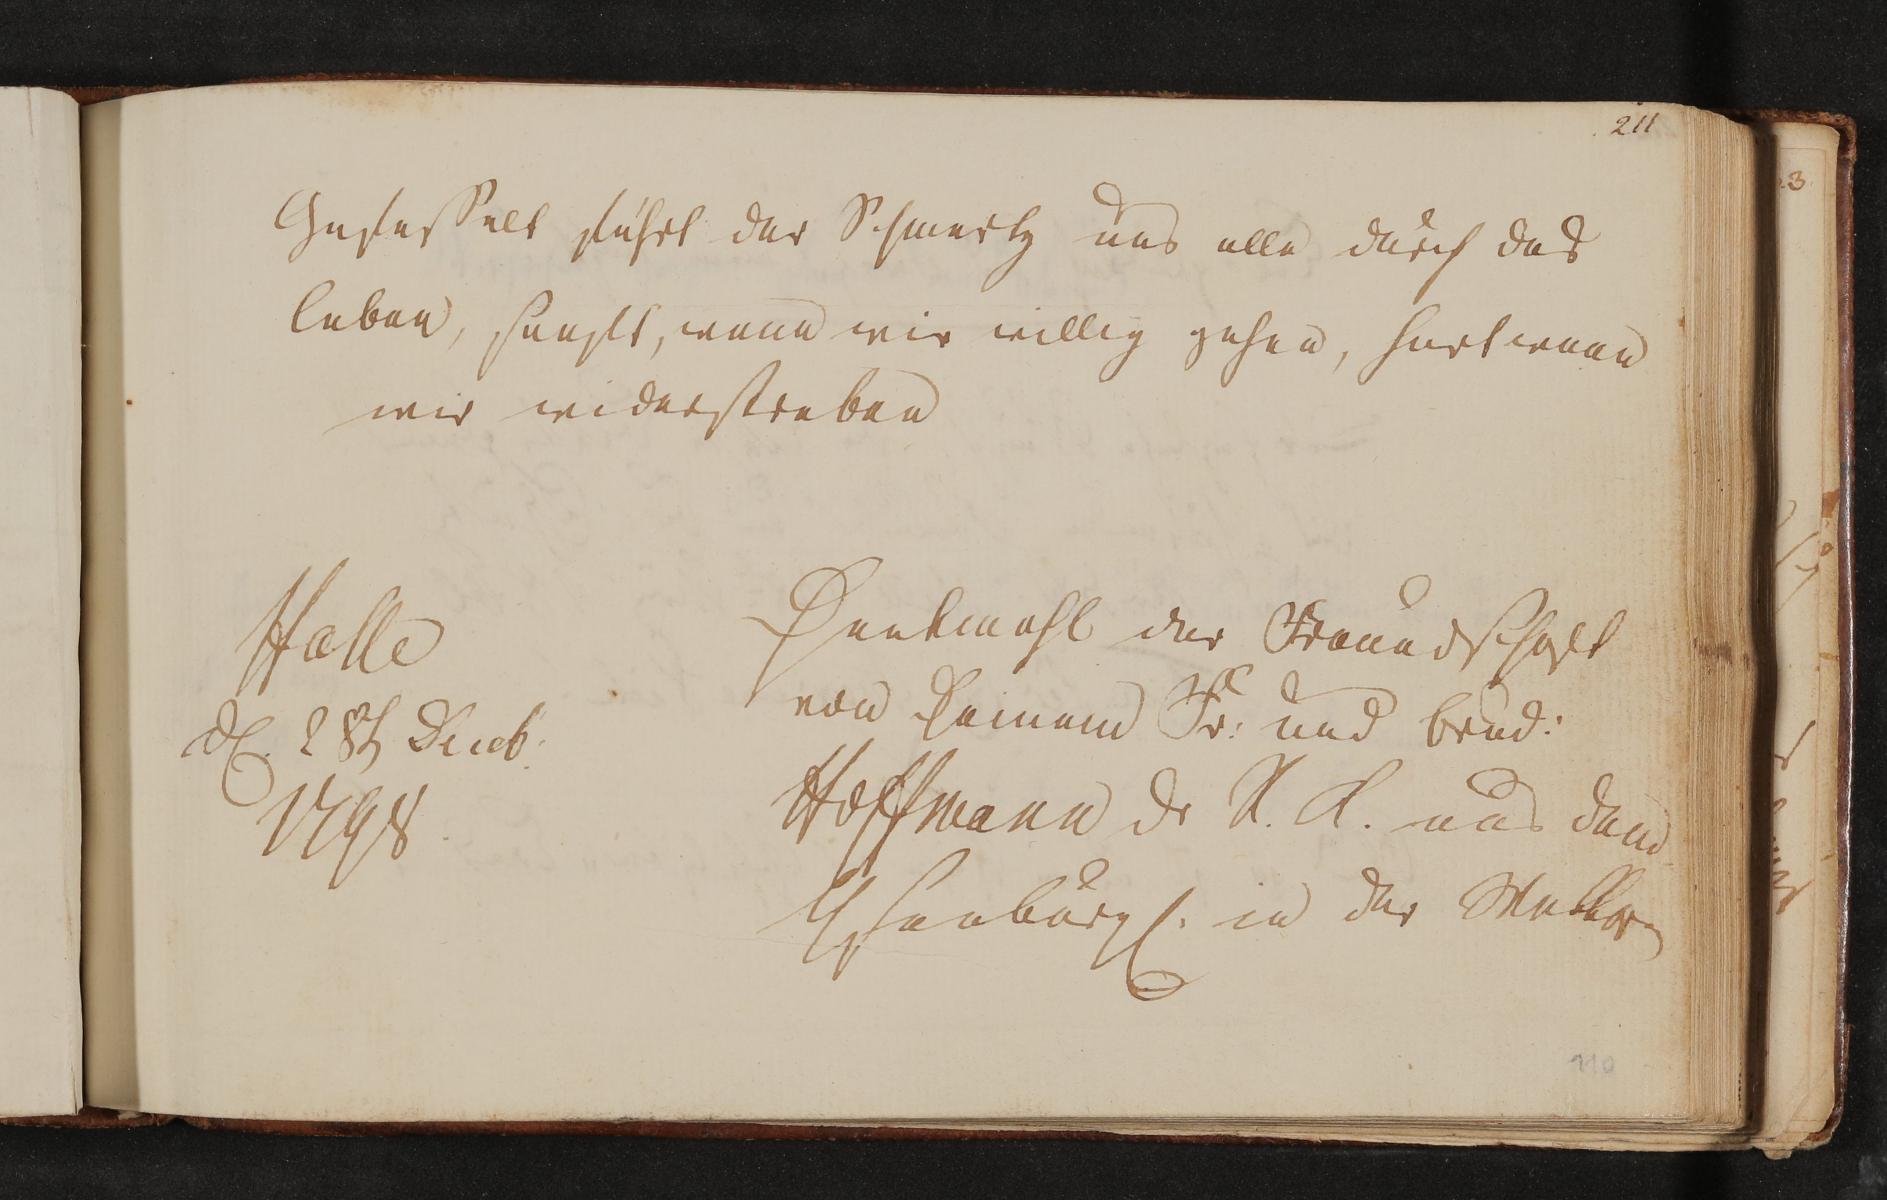 211
Gefesselt führt der Schmertz uns alle durch das
leben, sanft, wenn wir willig gehen, hart wenn
wir widerstreben
Halle
d. 28t Deceb.
1798
Denkmahl der Freundschaft
von Deinem Fr: und brud:
Hoffmann d. R. K. aus dem
Ysenburg. in der Wetter
210